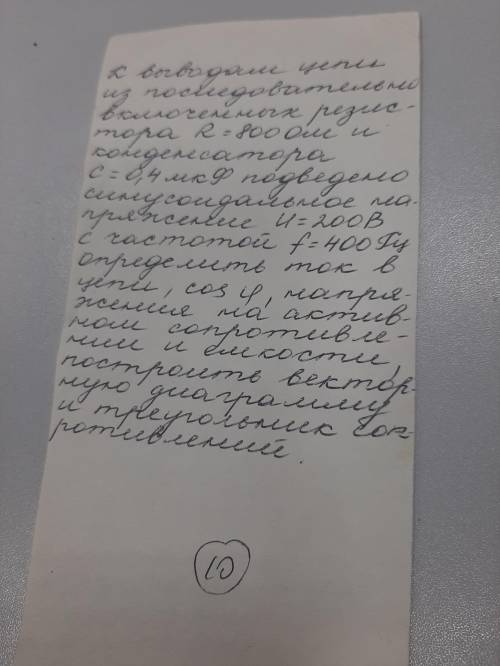 к выводам цепи
из последовательно
включенных резис-
тора R=800 Ом и
конденсатора
C=0,4 мкФ подведено
синусоидальное на-
пряжение U=200В
с частотой f=400 Гц
определить ток в
цепи, cos φ, напря-
жения на актив-
ном сопротивле-
нии и емкости,
построить вектор-
ную диаграмму
и треугольник соп-
ротивлений.
10